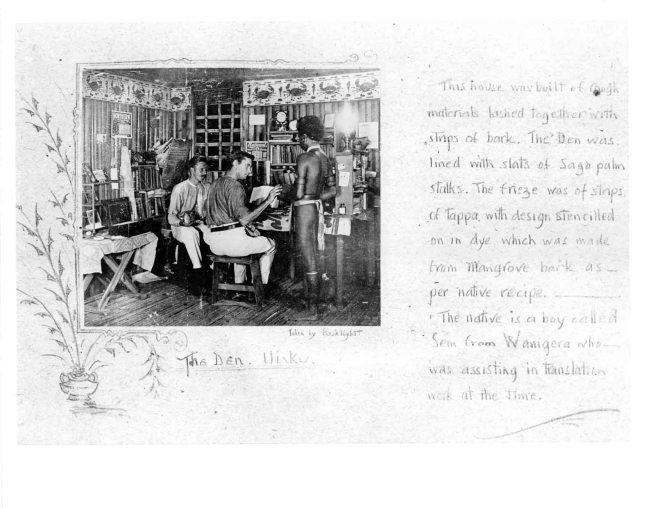 Taken by flashlight
The Den. Uiaku.
This house was built of rough
materials lashed together with
strips of bark. The Den was
lined with slats of Sago palm
stalks. The frieze was of strips
of Tappa, with design stencilled
on in dye which was made
from Mangrove bark as
per native recipe.
The native is a boy called
Sem from Wanigera who
was assisting in translation
work at the time.